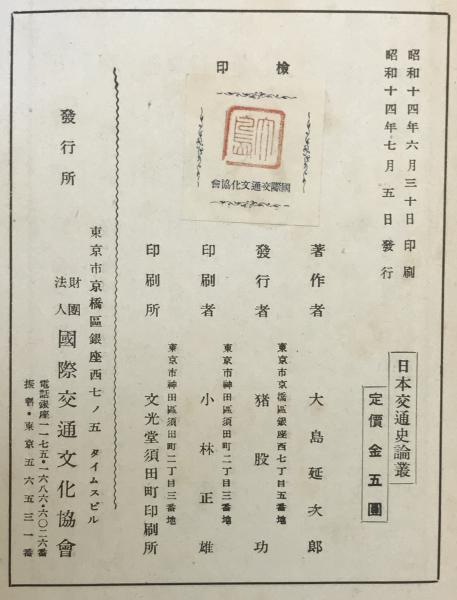 昭和十四年六月三十日印刷
昭和十四年七月五日發行
日本交通史論叢
定價金五圓
檢印
大島
國際交通文化協會
著作者
大島延次郎
東京市京橋區銀座西七丁目五番地
發行者
猪股功
東京市神田區須田町二丁目三番地
印刷者
小林正雄
東京市神田區須田町二丁目三番地
印刷所
文光堂須田町印刷所
發行所
東京市京橋區銀座西七ノ五 タイムスビル
財團法人 國際交通文化協會
電話銀座一一七五・一六八六・六〇二六番
振替・東京五六五三一番